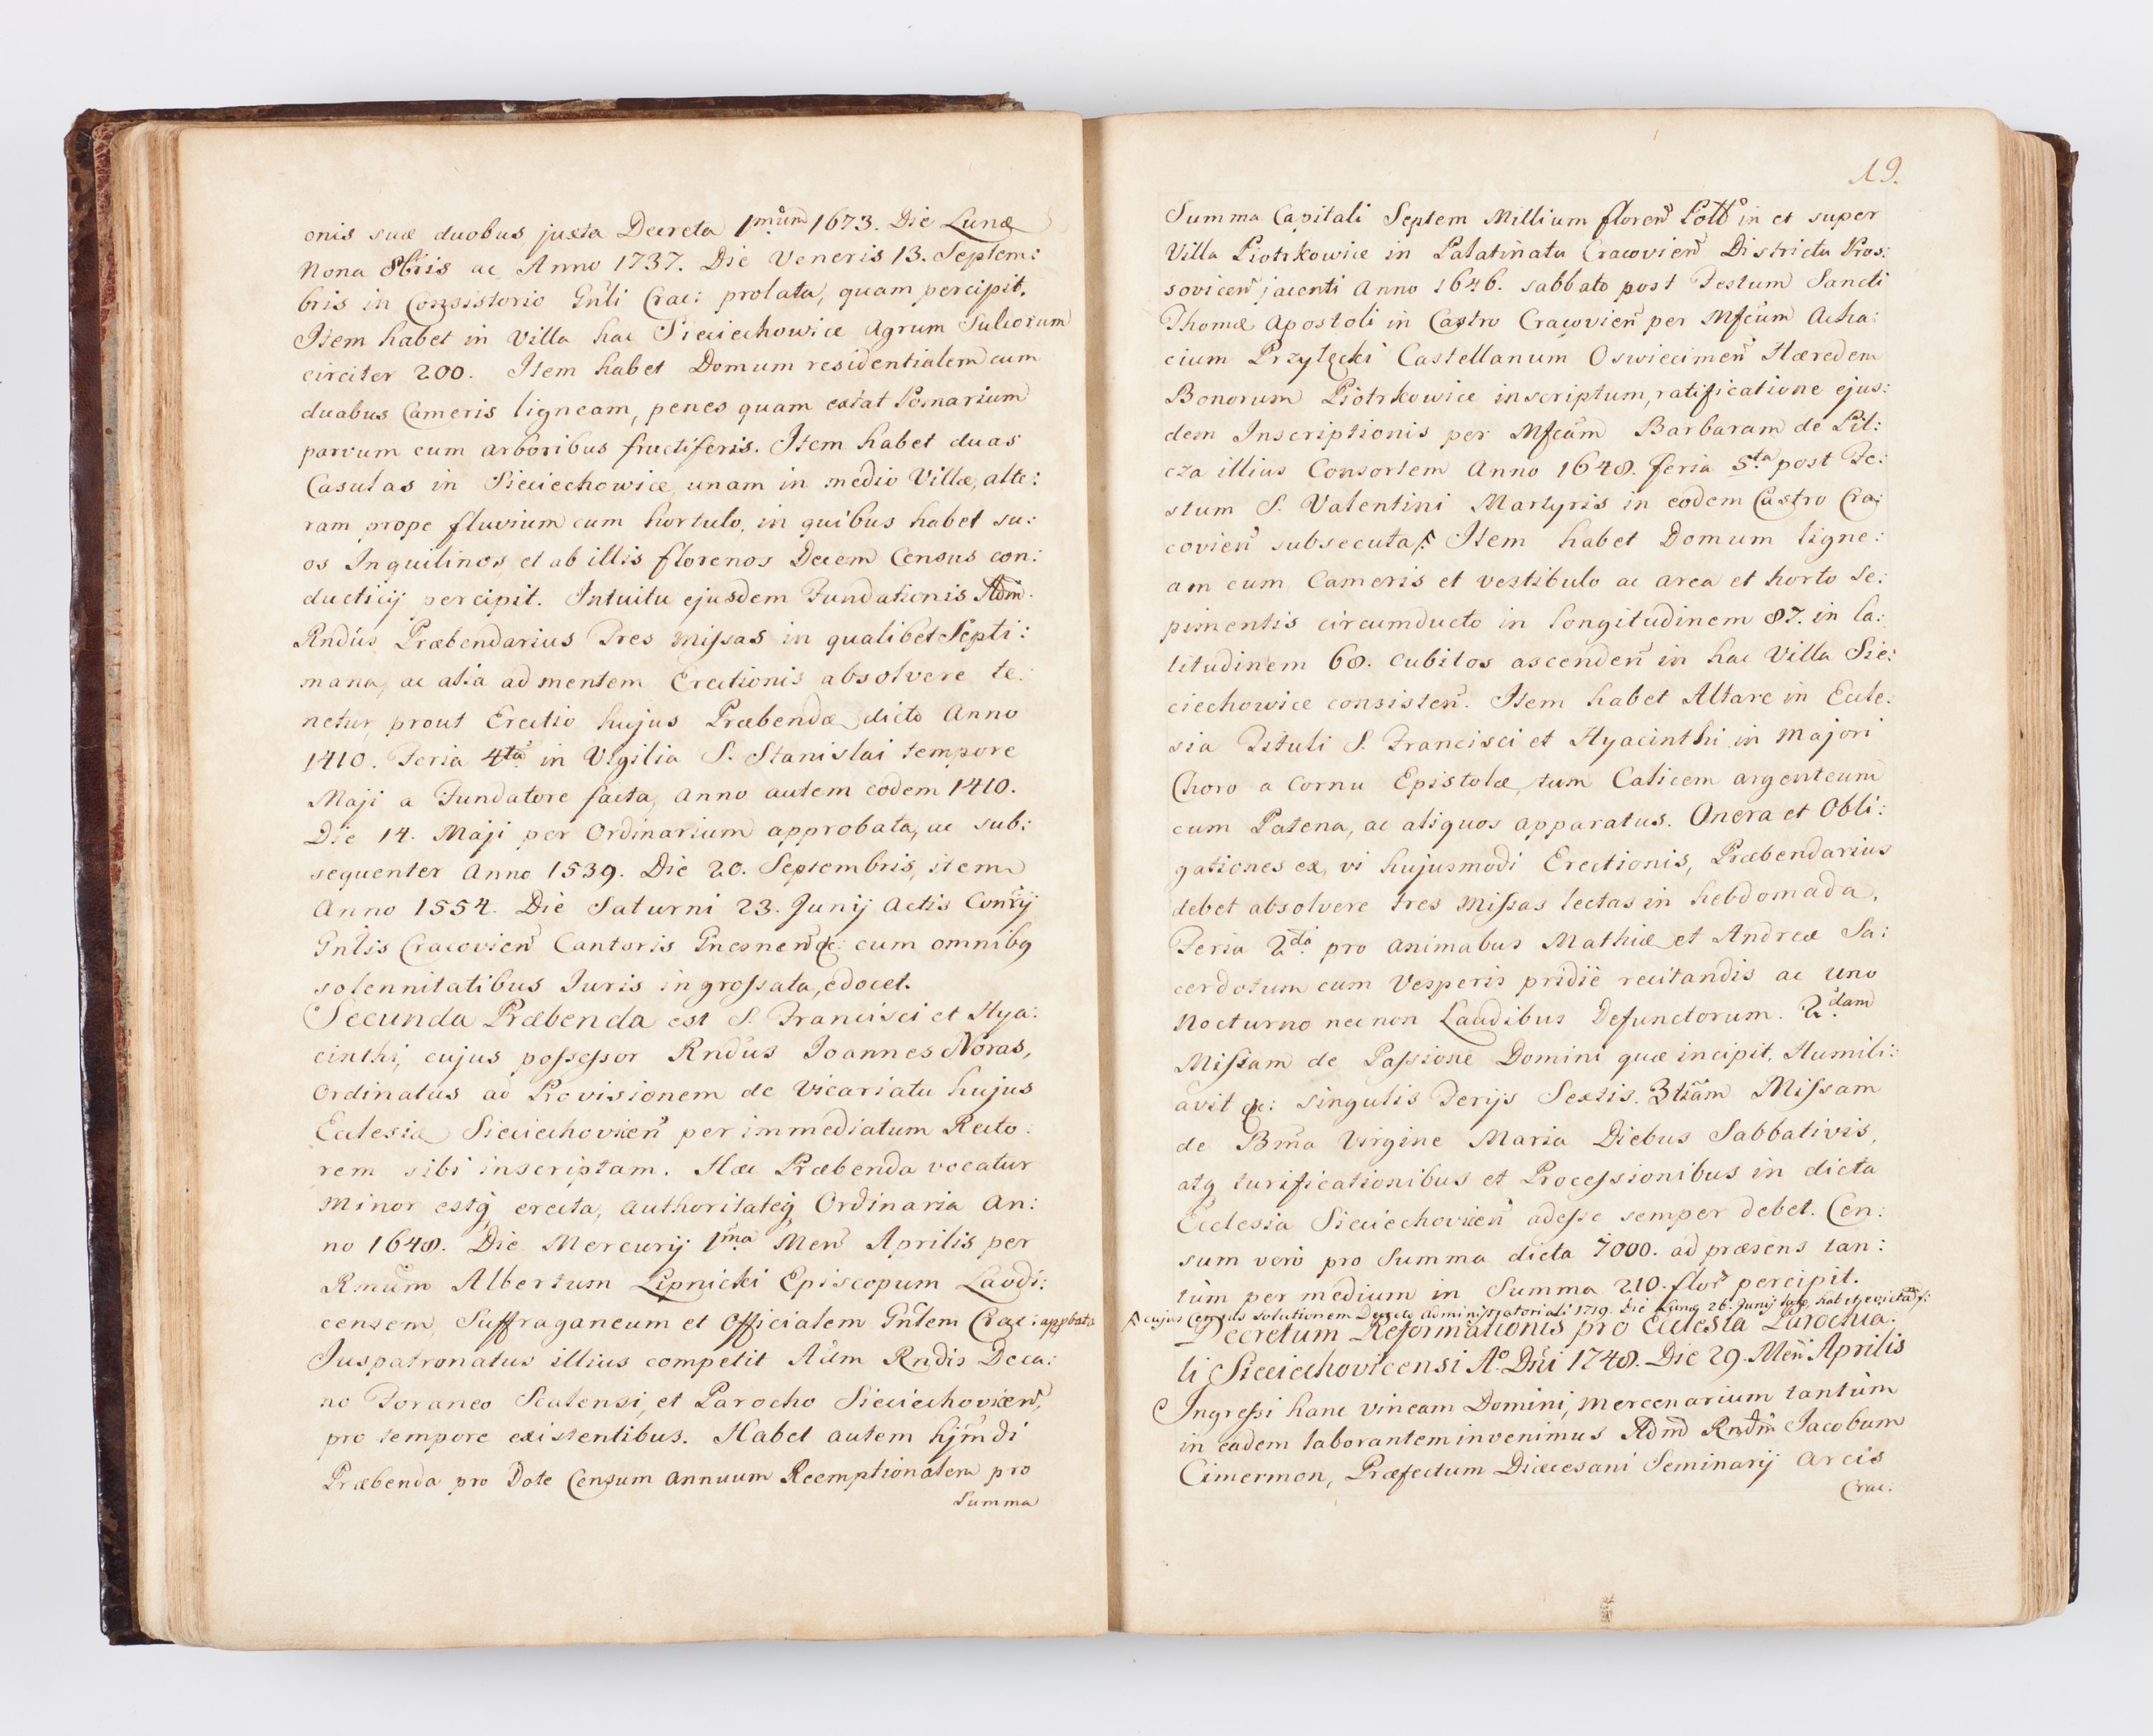 onis suæ duobus juxta Decreta 1mum 1673. Die Lunæ
Nona 8bris ac Anno 1737. Die Veneris 13. Septem:
bris in Consistorio Gnli Crac: prolata, quam percipit.
Item habet in Villa hac Sieciechowice Agrum Sulcorum
circiter 200. Item habet Domum residentialem cum
duabus Cameris ligneam, penes quam extat Pomarium
parvum cum arboribus fructiferis. Item habet duas
Casulas in Sieciechowice, unam in medio Villæ, alte:
ram prope fluvium cum hortulo, in quibus habet su:
os Inquilinos et ab illis florenos Decem Census con:
ductitij percipit. Intuitu ejusdem Fundationis Adm
Rndus Præbendarius Tres Missas in qualibet Septi:
mana, ac alia ad mentem Erectionis absolvere te:
netur, prout Erectio hujus Præbendæ dicto Anno
1410. Feria 4ta in Vigilia S. Stanislai tempore
Maji a Fundatore facta, anno autem eodem 1410.
Die 14. Maji per Ordinarium approbata, ac sub:
sequenter Anno 1539. Die 20. Septembris, item
Anno 1554. Die Saturni 23. Junij Actis Conrij
Gnlis Cracovien Cantoris Gnesnen &c: cum omnibq
solennitatibus Juris ingrossata, edocet.
Secunda Præbenda est S. Francisci et Hya:
cinthi, cujus possessor Rndus Joannes Noras,
Ordinatus ad Provisionem de Vicariatu hujus
Ecclesiæ Sieciechovicen per immediatum Recto:
rem sibi inscriptam. Hæc Præbenda vocatur
Minor estq erecta, authoritateq Ordinaria An:
no 1648. Die Mercurij 1ma Men Aprilis per
Rmum Albertum Lipnicki Episcopum Laodi:
censem, Suffraganeum et Officialem Gnlem Crac: appbata
Juspatronatus illius competit Adm Rndis Deca:
no Foraneo Scalensi, et Parocho Sieciechovicen,
pro tempore existentibus. Habet autem hjmdi
Præbenda pro Dote Censum annuum Reemptionalem pro
Summa
19.
Summa Capitali Septem Millium floren Poll in et super
Villa Piotrkowice in Palatinatu Cracovien Districtu Pros:
sovicen jacenti Anno 1646. sabbato post Festum Sancti
Thomæ Apostoli in Castro Cracovien per Mfcum Acha:
cium Przyłęcki Castellanum Oswiecimen Hæredem
Bonorum Piotrkowice inscriptum, ratificatione ejus:
dem Inscriptionis per Mfcam Barbaram de Pil:
cza illius Consortem Anno 1648. feria 5ta post Fe:
stum S. Valentini Martyris in eodem Castro Cra:
covien subsecuta. Item habet Domum ligne:
am cum Cameris et vestibulo ac area et horto se:
pimentis circumducto in longitudinem 87. in la:
titudinem 68. cubitos ascenden in hac Villa Sie:
ciechowice consisten. Item habet Altare in Eccle:
sia Tituli S. Francisci et Hyacinthi in Majori
Choro a Cornu Epistolæ, tum Calicem argenteum
cum Patena, ac aliquos apparatus. Onera et Obli:
gationes ex vi hujusmodi Erectionis, Præbendarius
debet absolvere tres Missas lectas in hebdomada,
Feria 2da pro animabus Mathiæ et Andreæ Sa:
cerdotum cum Vesperis pridie recitandis ac uno
Nocturno necnon Laudibus Defunctorum. 2dam
Missam de Passione Domini quæ incipit, Humili:
avit &c: singulis Ferijs Sextis. 3tiam Missam
de Bma Virgine Maria Diebus Sabbativis,
atq turificationibus et Processionibus in dicta
Ecclesia Sieciechovicen adesse semper debet. Cen:
sum vero pro Summa dicta 7000. ad præsens tan:
tum per medium in Summa 210. flor percipit.
cujus census solutionem Decreto Administratoriali 1719. Die Lunæ 26. Junij lato, habet evictam
Decretum Reformationis pro Ecclesia Parochia:
li Sieciechovicensi Ao Dni 1748. Die 29. Men Aprilis
Ingressi hanc vineam Domini, mercenarium tantum
in eadem laborantem invenimus Admd Rndm Jacobum
Cimermon, Præfectum Diæcesani Seminarij Arcis
Crac: